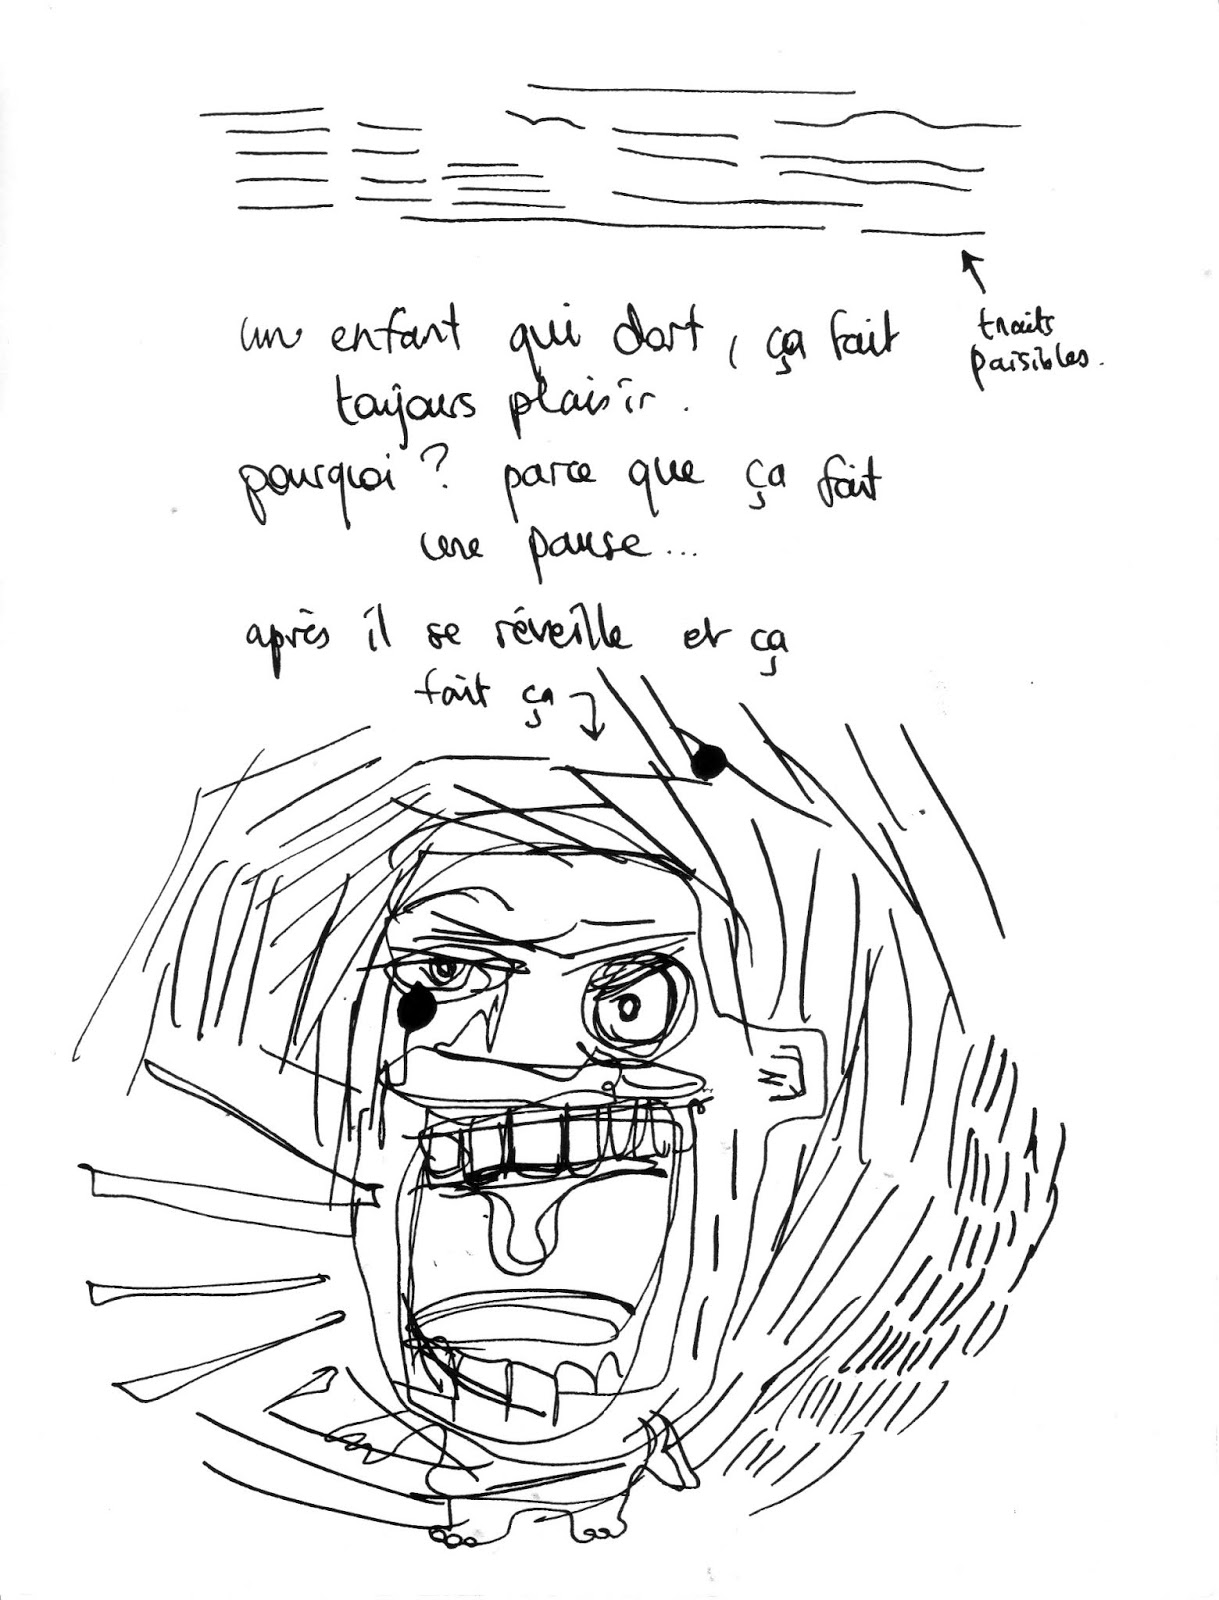 un enfant qui dort, ça fait
toujours plaisir.
pourquoi? parce que ça fait
une pause...
après il se réveille et ça
fait ça
traits
paisibles.